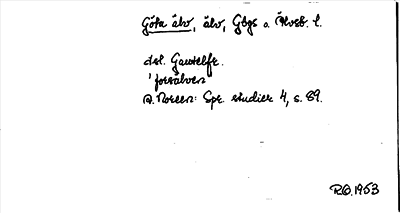 Göta älv, älv, Gbgs o. Älvsb. l.
dsl. Gautelfr.
'forsälven
A. Noreen: Spr. studier 4, s. 89.
R.O. 1953